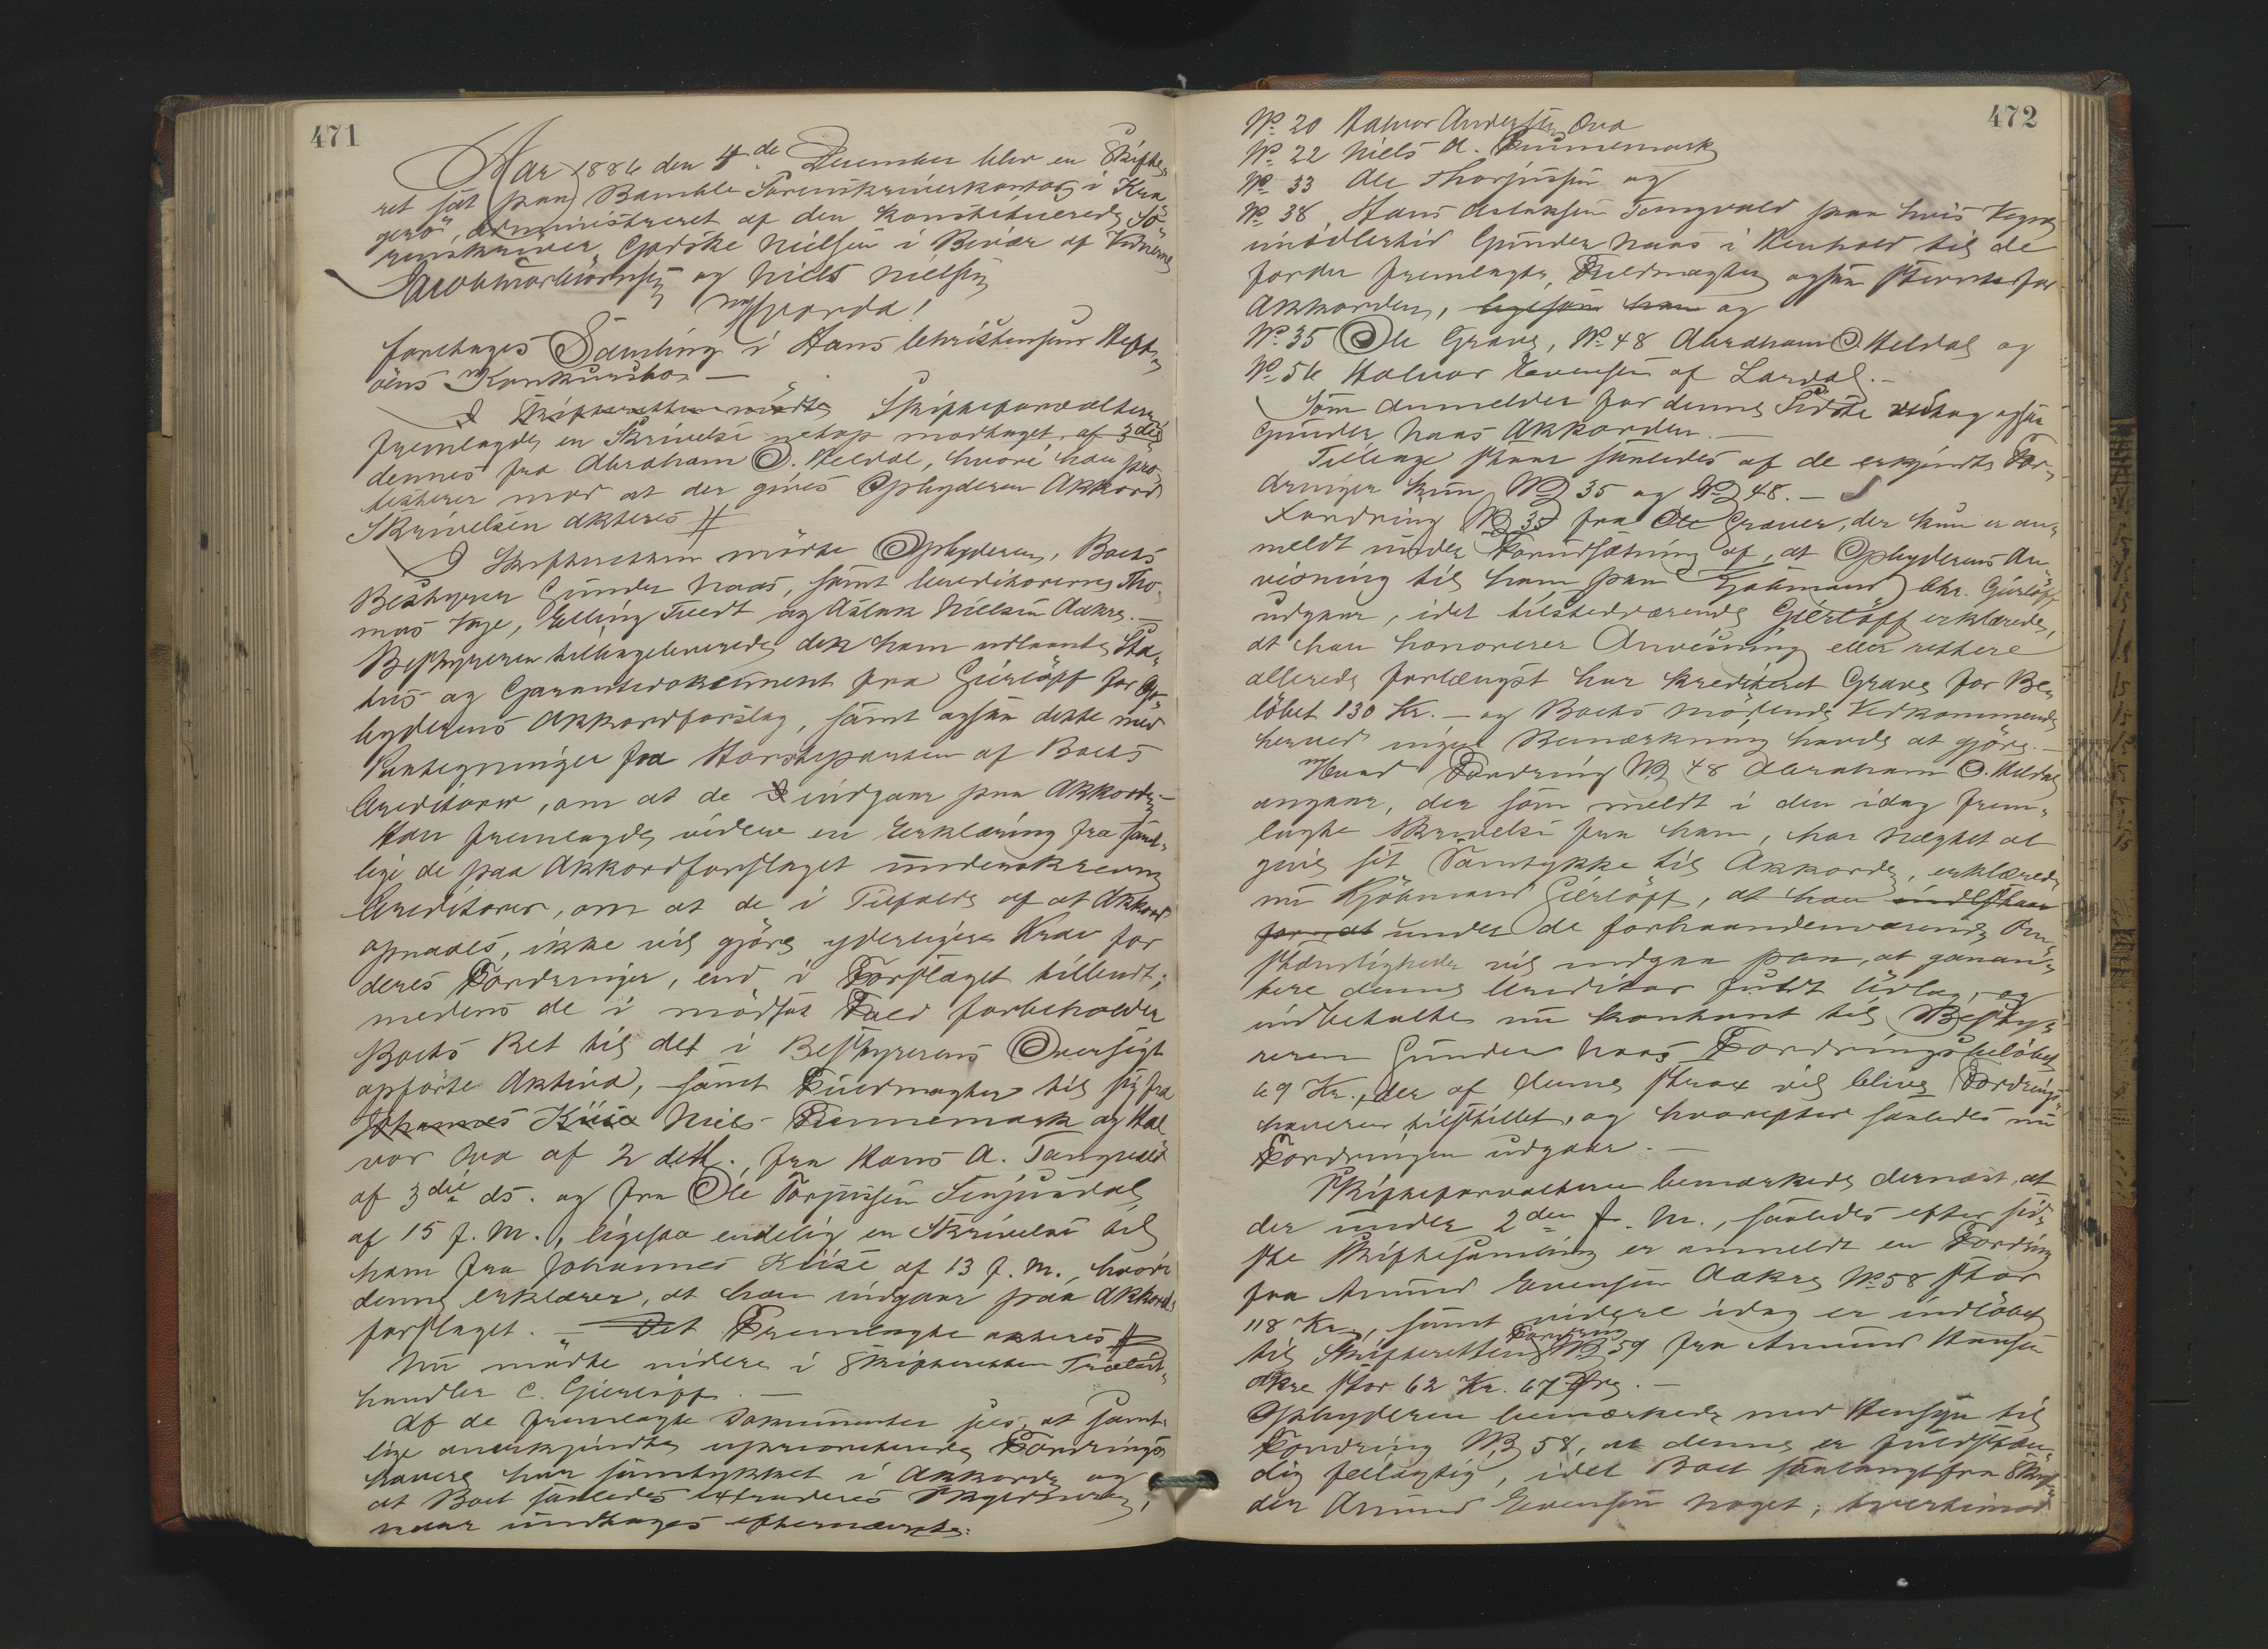 471
Aar 1886 den 4de December blev en Skifte-
ret sat paa Bamble Sorenskriverkontor i Kra-
gerø, administreret af den konstituerede So-
renskriver, Godske Nielsen i Bivær af Vidnerne
Jacob Marthiørnsen og Niels Nielsen
Hvorda!
foretages Samling i Hans Christensen Heft-
øens Konkursbo. —
I Skifteretten mødte Skifteforvalteren
fremlagde en Skrivelse netop modtaget, af 3die
dennes fra Abraham O. Heldal, hvori han pro-
testerer mod at der gives Opbyderen Akkord
Skrivelsen akteres #
I Skifteretten mødte Opbyderen, Boets
Bestyrer Gunder Naas, samt Creditorerne Tho-
mas Vage, Elling Tvedt og Aslak Nielsen Aakre. —
Bestyreren tilbageleverede den ham udlaante Sta-
tus og Garantidokument fra Gierløff for Op-
byderens Akkordforslag, samt ogsaa dette med
Paategninger fra Storsteparten af Boets
Creditorer, om at de indgaar paa Akkorden
Han fremlagde videre en Erklæring fra samt-
lige de paa Akkordforslaget underskrevne
Creditorer, om at de i Tilfælde af at Akkord
opnaaes, ikke vil gjøre yderligere Krav for
deres Fordringer, end i Forslaget tilbudt;
medens de i modsat Fald forbeholder
Boets Ret til det i Bestyrerens Oversigt
opførte Aktiva, samt Fuldmagter til sig fra
Johannes Kiise Niels Finnemark og Hal-
vor Ova af 2 dets., fra Hans A. Tangvald
af 3die ds. og fra Ole Torjussen
af 15 f. M., ligesaa endelig en Skrivelse til
ham fra Johannes Kiise af 13 f. M., hvori
denne erklærer, at han indgaar paa Akkord-
forslaget. — Det Fremlagte akteres #
Nu mødte videre i Skifteretten Trælast-
handler C. Gierløff. —
Af de fremlagte Dokumenter sees, at samt-
lige anerkjendte uprioriterede Fordrings-
havere har samtykket i Akkorden og
at Boet saaledes extraderes Skyldneren,
naar undtages efternævnte:
472
No. 20 Halvor Andersen Ova
No. 22 Niels A. Finnemark
No. 33 Ole Thorjussen og
No. 38 Hans Aslaksen Tangvald paa hvis Vegne
imidlertid Gunder Naas i Henhold til de
forder fremlagte Fuldmagter ogsaa stemte for
Akkorden, ligesom han og
No. 35 Ole Grave, No. 48 Abraham O. Heldal og
No. 56 Halvor Evensen af Lardal. —
Som Anmelder for denne Sidste vedtog ogsaa
Gunder Naas Akkorden. —
Tilbage staar saaledes af de erkjendte For-
dringer kun No 35 og No 48. —
Fordring No 35 fra Ole Graver, der kun er an-
meldt under Forudsætning af, at Opbyderens An-
visning til ham paa Kjøbmand Chr. Gierløff
udgaar, idet tilstedværende Gierløff erklærede,
at han honorerer Anvisning eller rettere
allerede forlængst har krediteret Grave for Be-
løbet 130 Kr. — og Boets mødende Vedkommende
herved ingen Bemærkning havde at gjøre. —
Hvad Fordring No 48 Abraham O. Heldal
angaar, der som meldt i den idag frem-
lagte Skrivelse fra ham, har nægtet at
give sit Samtykke til Akkorden, erklærede
nu Kjøbmand Gierløff, at han indestaar
for at under de forhaandenværende Om-
stændigheder vil indgaa paa, at garan-
tere denne Creditor fuldt Udlæg, og
indbetalte nu kontant til Besty-
reren Gunder Naas Fordringsbeløbet
69 Kr., der af denne strax vil blive Fordrings-
haveren tilstillet, og hvorefter saaledes nu
Fordringen udgaar. —
Skifteforvalteren bemærkede dernæst, at
der under 2den f. M., saaledes efter sid-
ste Skiftesamling er anmeldt en Fordring
fra Amund Evensen Aakre No. 58 stor
118 Kr., samt videre idag er indløbet
til Skifteretten Fordring No 59 fra Amund Hansen
Akre stor 62 Kr. 67 Øre. —
Opbyderen bemærkede med Hensyn til
Fordring No 58, at denne er fuldstæn-
dig feilagtig, idet Boet saalangtfra skyl-
der Amund Evensen noget; tvertimod